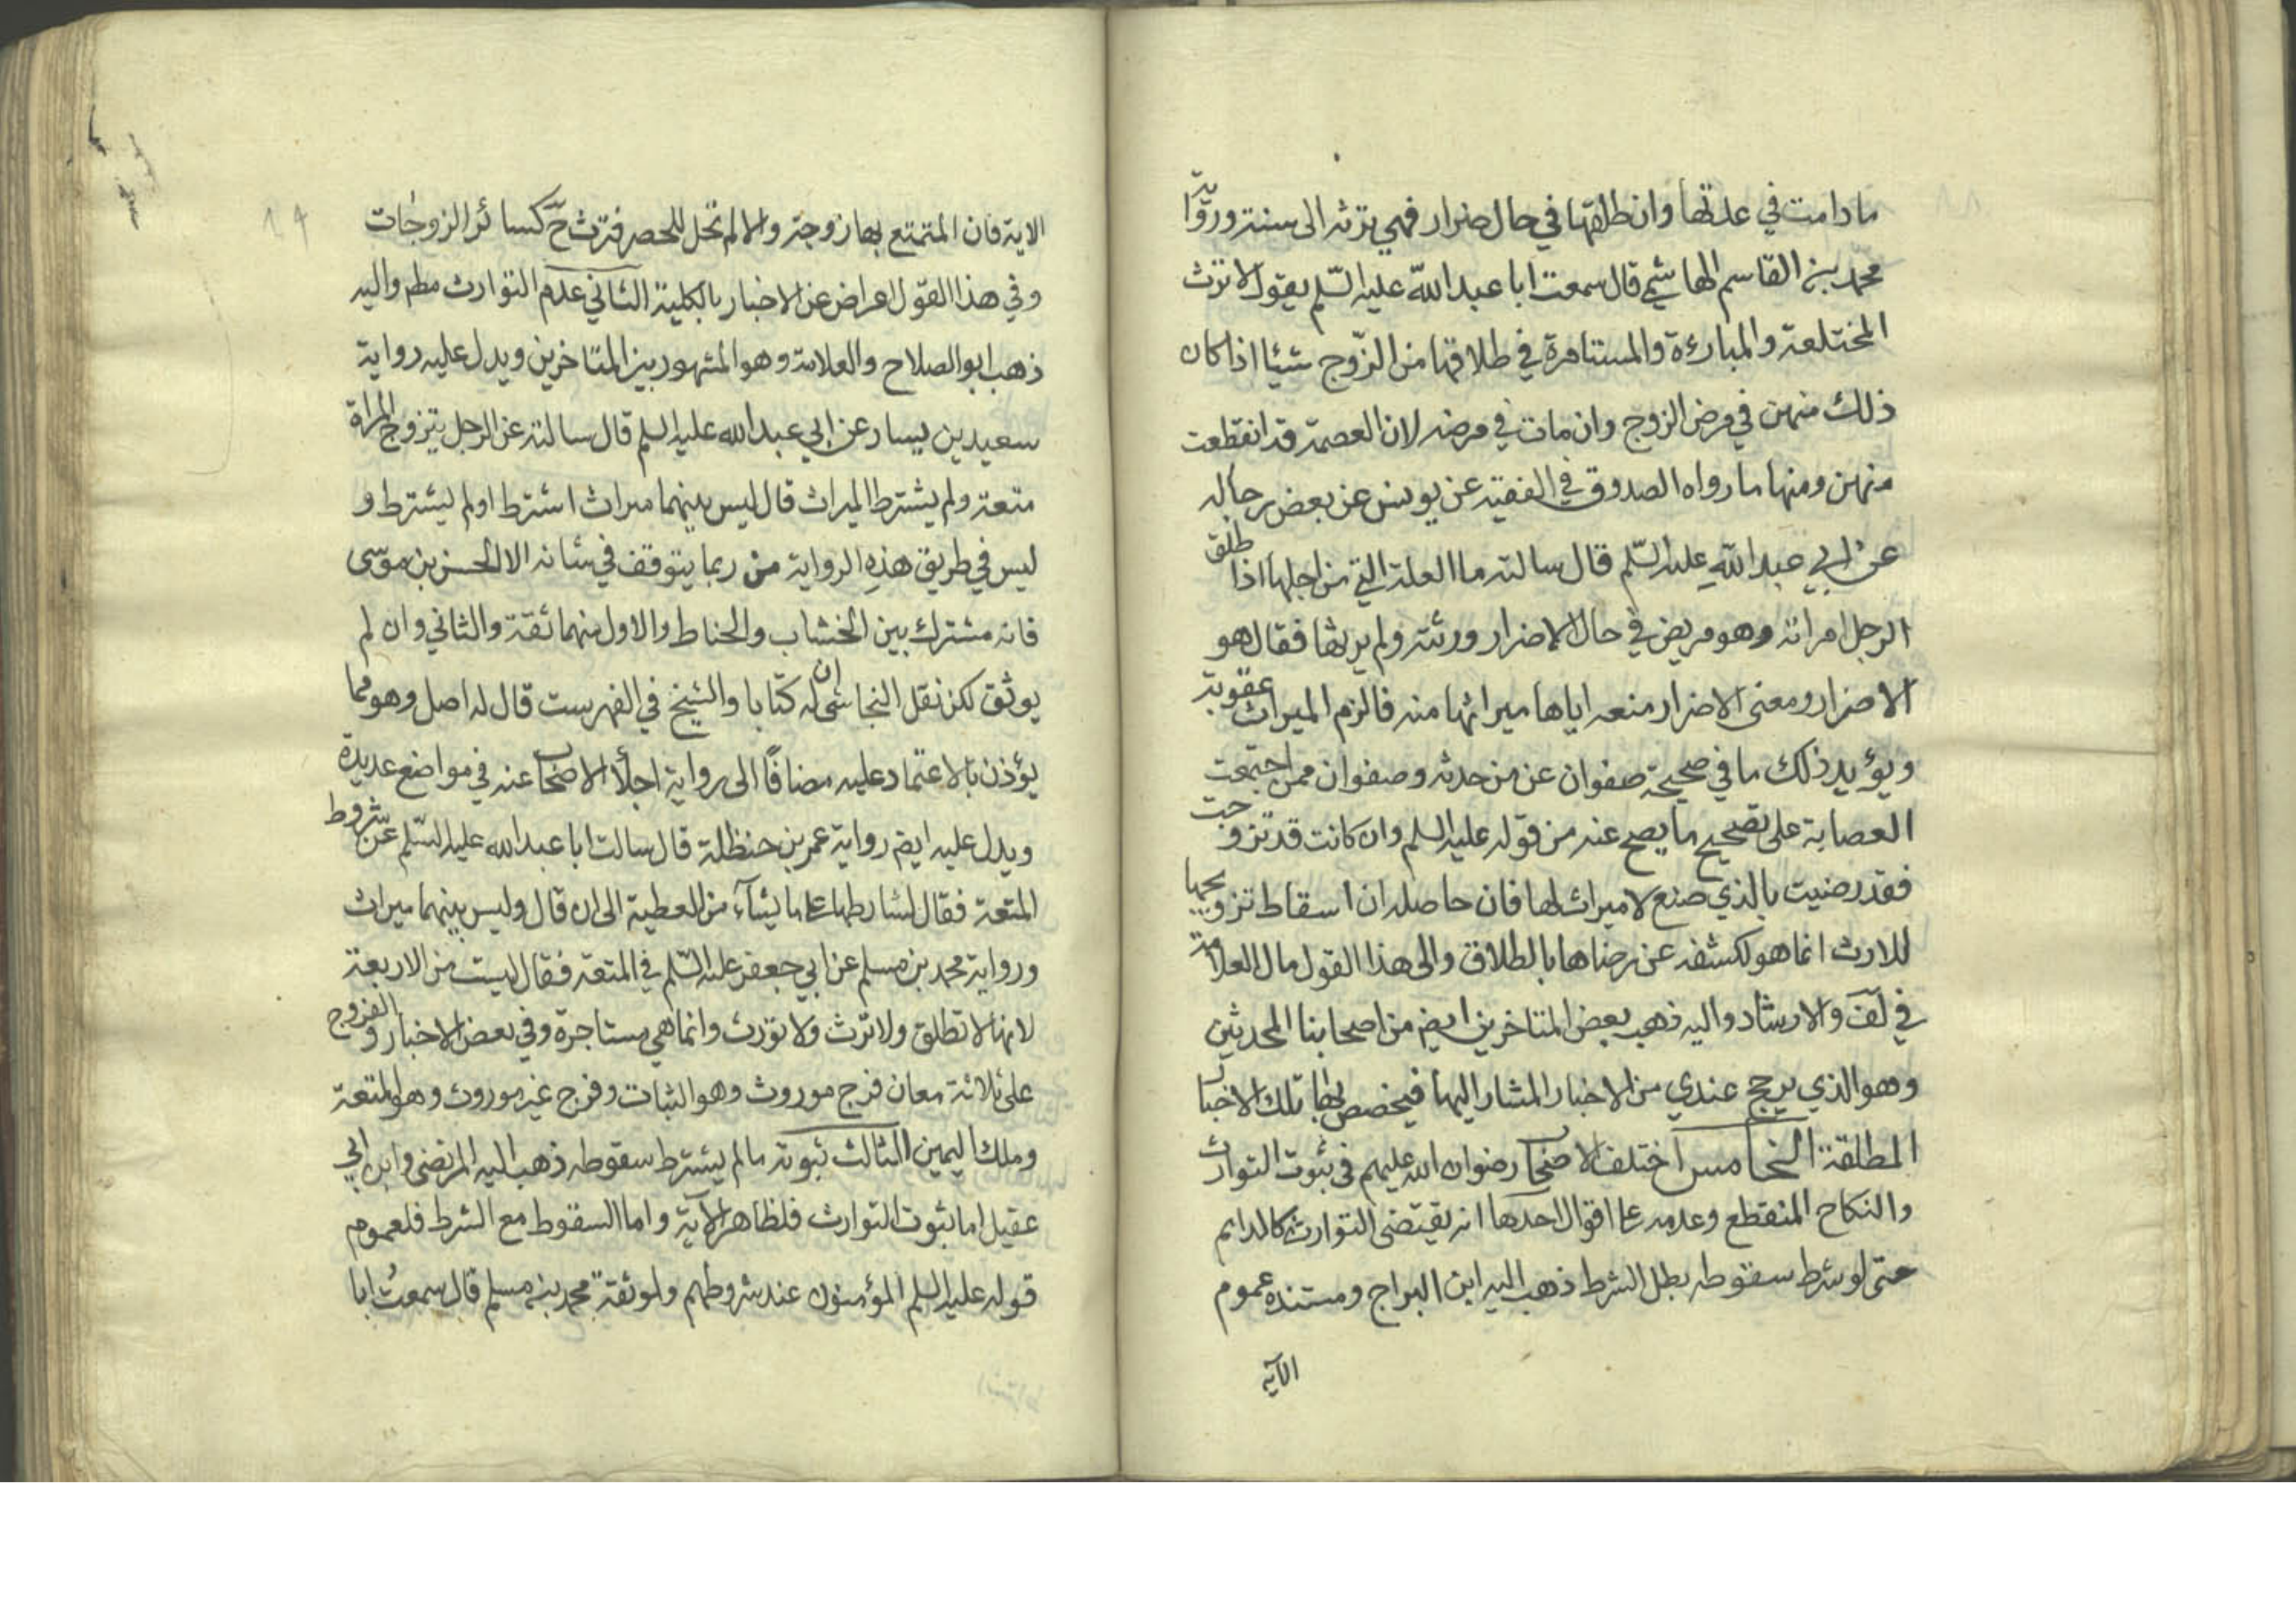 ما دامت في عدتها وان طلقها في حال ضرار فهي ترثه الى سنة ورواية
محمد بن القاسم الهاشمي قال سمعت ابا عبد الله عليه السّلم يقول لا ترث
المختلعة والمبارءة والمستامرة في طلاقها من الزّوج شيئا اذا كان
ذلك منهن في مرض الزوج وان مات في مرضه لان العصمة قد انقطعت
منهن ومنها ما رواه الصدوق في الفقيه عن يونس عن بعض رجاله
عن ابي عبد اللهِ عليه السّلم قال سالته ما العلة التي من اجلها اذا طلق
الرجل امراته وهو مريض في حال الاضرار ورثته ولم يرثها فقال هو
الاضرار ومعنى الاضرار منعه اياها ميراثها منه فالزم الميراث عقوبة
ويؤيد ذلك ما في صحيحة صفوان عن من حدثه وصفوان ممن اجتمعت
العصابة على تصحيح ما يصح عنه من قوله عليه السلم وان كانت قد تزوجت
فقد رضيت بالذي صنع لا ميراث لها فان حاصله ان اسقاط تزويجها
للارث انما هو لكشفه عن رضاها بالطلاق والى هذا القول مال العلامة
في لف والارشاد واليه ذهب بعض المتاخرين ايض من اصحابنا المحدثين
وهو الذي يرجح عندي من الاخبار المشار اليها فيخصص بها تلك الاخبار
المطلقة الخامس اختلف الاصحاب رضوان الله عليهم في ثبوت التوارث
والنكاح المنقطع وعدمه على اقوال احدها انه يقتضى التوارث كالدايم
حتى لو شرط سقوطه بطل الشرط ذهب اليه ابن البراج ومستنده عموم
الآية
الاية فان المتمتع بها زوجة والا لم تحل للحصر فترث حّ كسائر الزوجات
وفي هذا القول اعراض عن الاخبار بالكلية الثاني عدم التوارث مطم واليه
ذهب ابو الصلاح والعلامة وهو المشهور بين المتاخرين ويدل عليه رواية
سعيد بن يسار عن ابي عبد الله عليه السلم قال سالته عن الرجل يتزوج المراة
متعة ولم يشترط الميراث قال ليس بينهما ميراث اشترط اولم يشترط و
ليس في طريق هذهِ الرواية من ربما يتوقف في شانه الا الحسن بن موسى
فانه مشترك بين الخشاب والحناط والاول منهما ثقة والثاني وان لم
يوثق لكن نقل النجاشى ان له كتابا والشيخ في الفهرست قال له اصل وهو مما
يؤذن بالاعتماد عليه مضافًا الى رواية اجلّا الاصحاب عنه في مواضع عديدة
ويدل عليه ايض رواية عمر بن حنظلة قال سالت ابا عبد الله عليه السّلم عن شروط
المتعة فقال يشارطها على ما يشآء من العطية الى ان قال وليس بينهما ميراث
ورواية محمد بن مسلم عن ابي جعفر عليه السّلم في المتعة فقال ليست من الاربعة
لانها لا تطلق ولا ترث ولا تورث وانما هي مستاجرة وفي بعض الاخبار والفروج
على ثلاثة معان فرج موروث وهو الثبات وفرج غير موروث وهو المتعة
وملك اليمين الثالث ثبوته ما لم يشترط سقوطه ذهب اليه المرتضى وابن ابي
عقيل اما ثبوت التوارث فلظاهر الآية واما السقوط مع الشرط فلعموم
قوله عليه السلم المؤمنون عند شروطهم ولموثقة محمد بن مسلم قال سمعتُ ابا